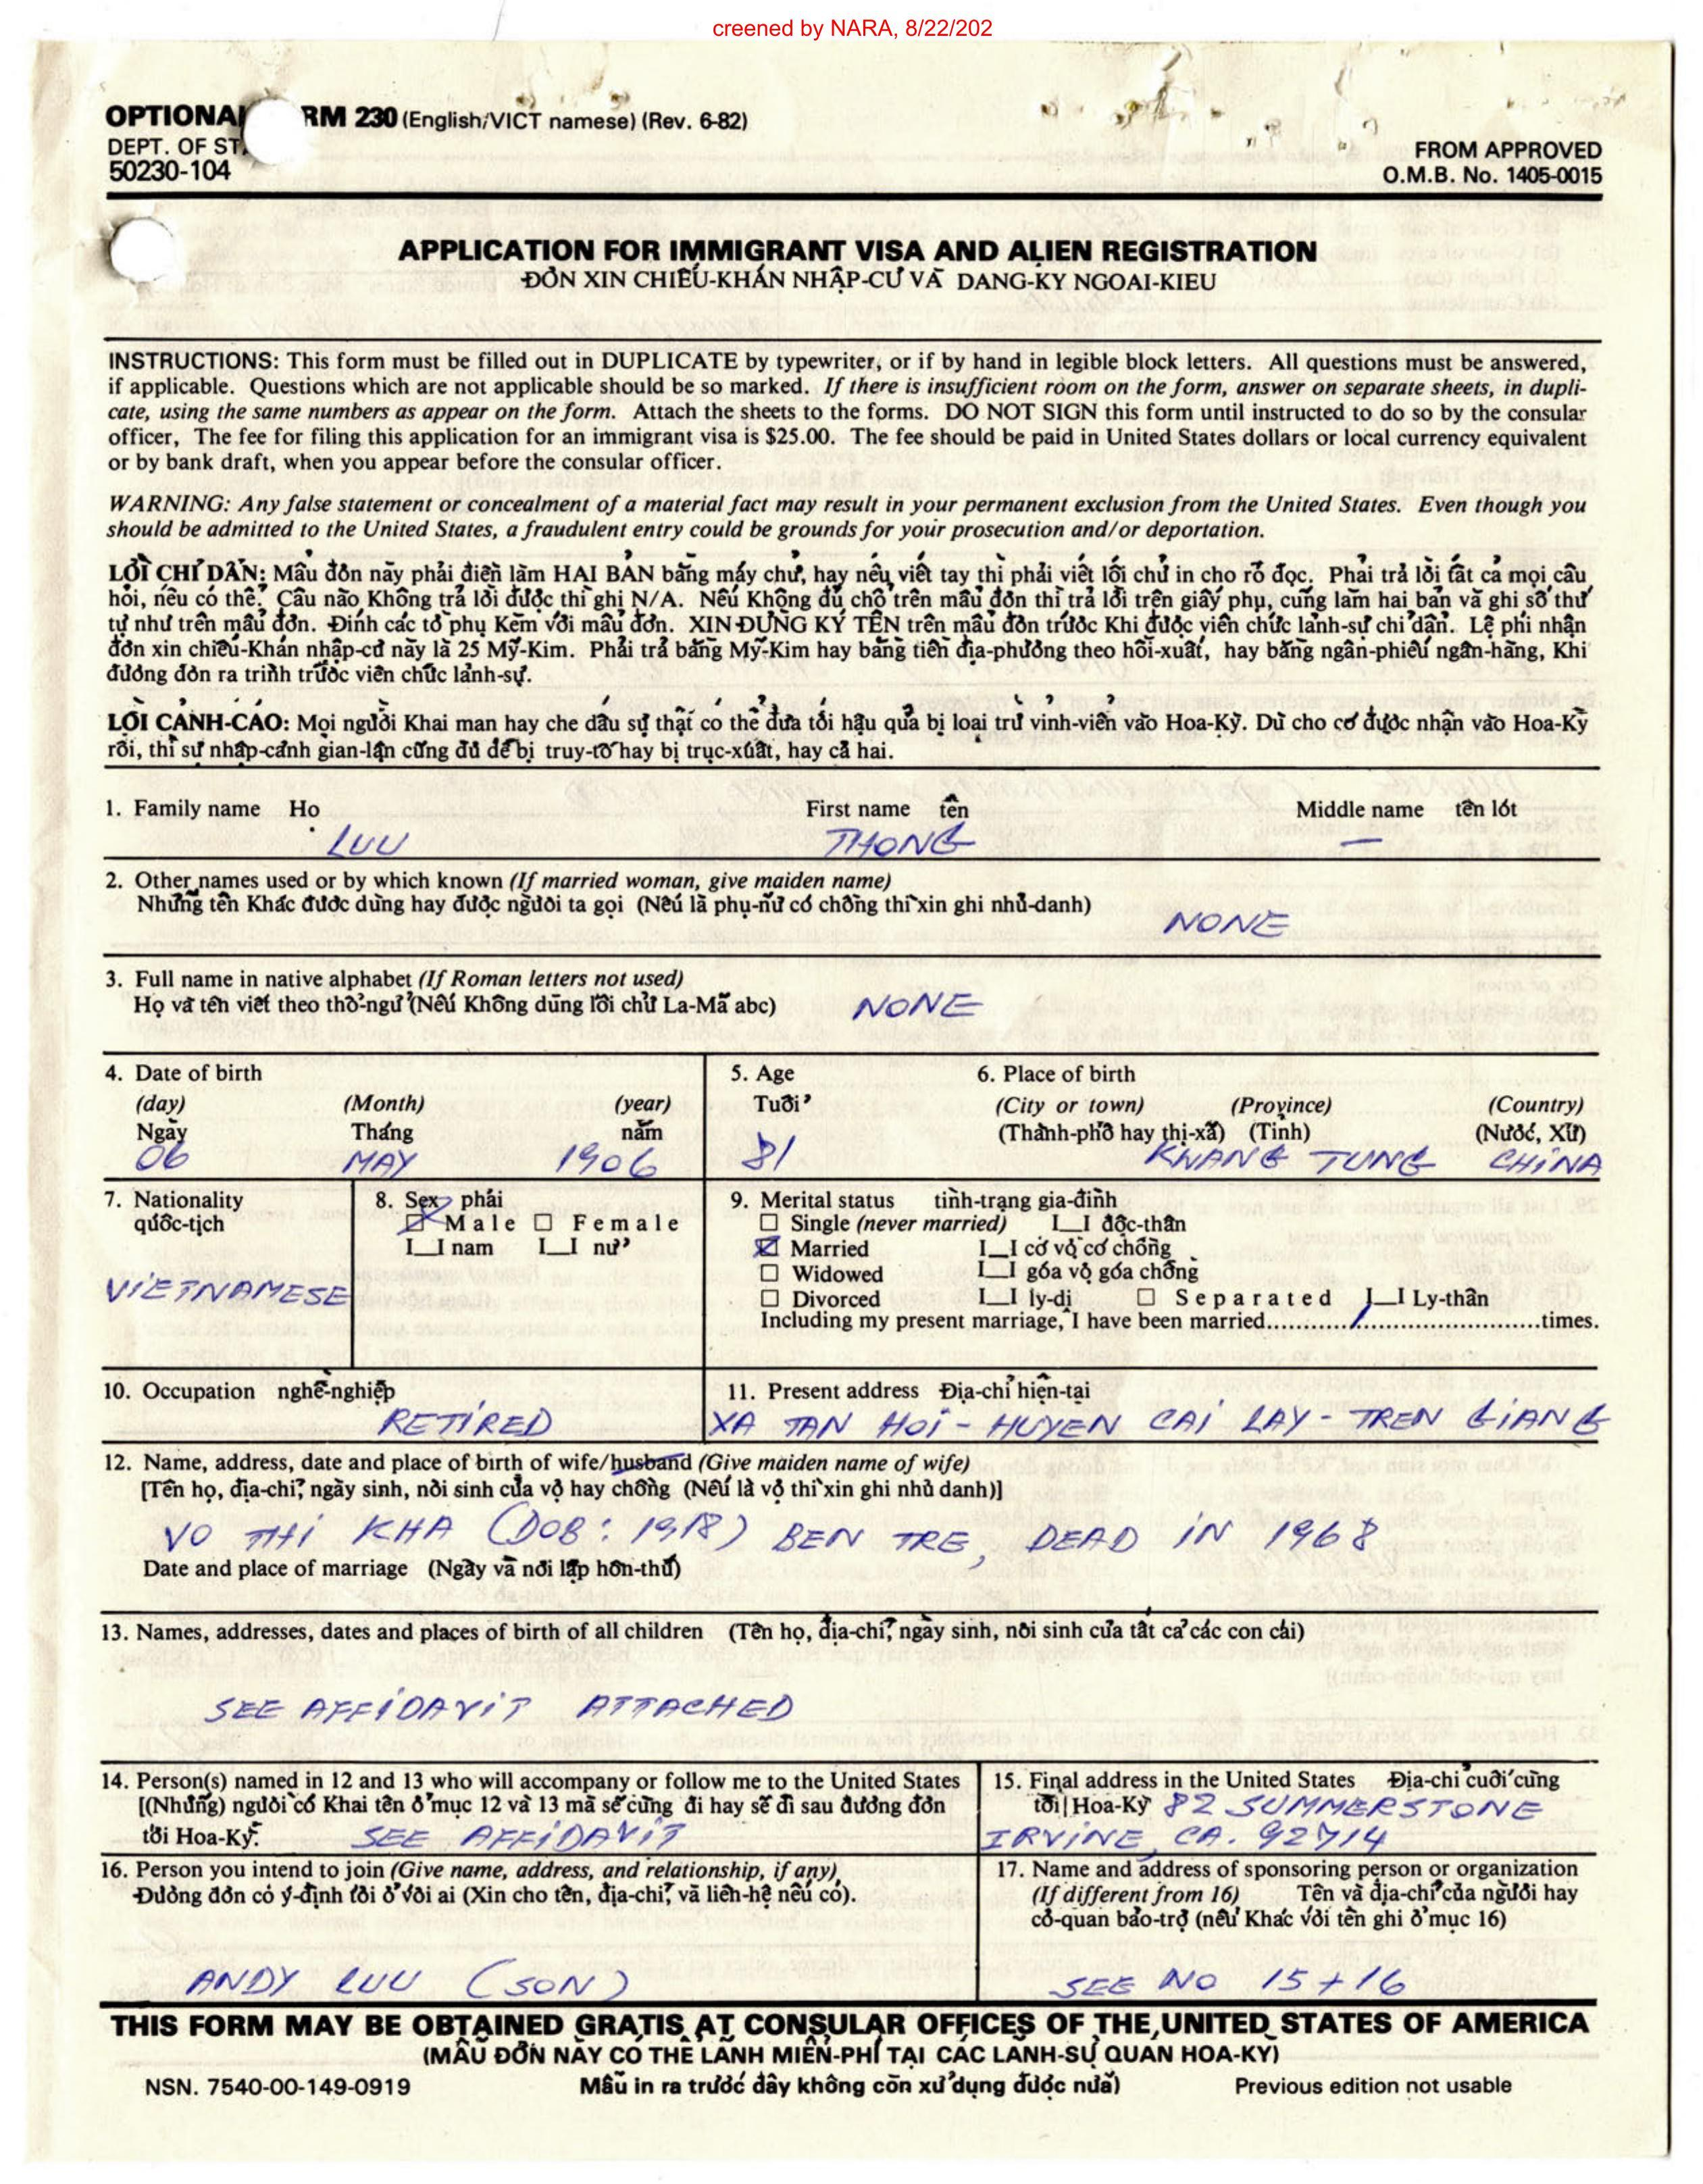 creened by NARA, 8/22/202
OPTIONAL RM 230 (English/VICT namese) (Rev. 6-82)
DEPT. OF STA
50230-104
FROM APPROVED
O.M.B. No. 1405-0015
APPLICATION FOR IMMIGRANT VISA AND ALIEN REGISTRATION
ĐÒN XIN CHIẾU-KHÁN NHẬP-CƯ VÀ DANG-KY NGOAI-KIEU
INSTRUCTIONS: This form must be filled out in DUPLICATE by typewriter, or if by hand in legible block letters. All questions must be answered,
if applicable. Questions which are not applicable should be so marked. If there is insufficient room on the form, answer on separate sheets, in dupli-
cate, using the same numbers as appear on the form. Attach the sheets to the forms. DO NOT SIGN this form until instructed to do so by the consular
officer, The fee for filing this application for an immigrant visa is $25.00. The fee should be paid in United States dollars or local currency equivalent
or by bank draft, when you appear before the consular officer.
WARNING: Any false statement or concealment of a material fact may result in your permanent exclusion from the United States. Even though you
should be admitted to the United States, a fraudulent entry could be grounds for your prosecution and/or deportation.
LỜI CHỈ DẪN: Mẫu đơn này phải điền làm HAI BẢN bằng máy chữ, hay nếu viết tay thì phải viết lối chữ in cho rõ đọc. Phải trả lời tất cả mọi câu
hỏi, nếu có thể. Câu nào Không trả lời được thì ghi N/A. Nếu Không đủ chỗ trên mẫu đơn thì trả lời trên giấy phụ, cũng làm hai bản và ghi số thứ
tự như trên mẫu đơn. Đính các tờ phụ Kèm với mẫu đơn. XIN ĐỪNG KÝ TÊN trên mẫu đơn trước Khi được viên chức lảnh-sự chỉ dẫn. Lệ phí nhận
đơn xin chiếu-Khán nhập-cư này là 25 Mỹ-Kim. Phải trả bằng Mỹ-Kim hay bằng tiền địa-phương theo hối-xuất, hay bằng ngân-phiếu ngân-hàng, Khi
đương đơn ra trình trước viên chức lảnh-sự.
LỜI CẢNH-CÁO: Mọi người Khai man hay che dấu sự thật có thể đưa tới hậu quả bị loại trừ vỉnh-viễn vào Hoa-Kỳ. Dù cho cớ được nhận vào Hoa-Kỳ
rồi, thì sự nhập-cảnh gian-lận cũng đủ để bị truy-tố hay bị trục-xuất, hay cả hai.
1. Family name Họ First name tên Middle name tên lót
LUU THONG —
2. Other names used or by which known (If married woman, give maiden name)
Những tên Khác được dùng hay được người ta gọi (Nếu là phụ-nữ có chồng thì xin ghi nhủ-danh)
NONE
3. Full name in native alphabet (If Roman letters not used)
Họ và tên viết theo thổ-ngữ (Nếu Không dùng lối chữ La-Mã abc) NONE
4. Date of birth 5. Age 6. Place of birth
(day) (Month) (year) Tuổi (City or town) (Province) (Country)
Ngày Tháng năm (Thành-phố hay thị-xã) (Tỉnh) (Nước, Xứ)
06 MAY 1906 81 KWANG TUNG CHINA
7. Nationality 8. Sex phái 9. Merital status tình-trạng gia-đình
quốc-tịch Male Female Single (never married) I_I độc-thân
I_I nam I_I nữ Married I_I có vợ có chồng
VIETNAMESE Widowed I_I góa vợ góa chồng
Divorced I_I ly-dị Separated I_I Ly-thân
Including my present marriage, I have been married...........1...........................times.
10. Occupation nghề-nghiệp 11. Present address Địa-chỉ hiện-tại
RETIRED XA TAN HOI - HUYEN CAI LAY - TREN GIANG
12. Name, address, date and place of birth of wife/husband (Give maiden name of wife)
[Tên họ, địa-chỉ, ngày sinh, nơi sinh của vợ hay chồng (Nếu là vợ thì xin ghi nhủ danh)]
VO THI KHA (DOB: 1918) BEN TRE, DEAD IN 1968
Date and place of marriage (Ngày và nơi lập hôn-thú)
13. Names, addresses, dates and places of birth of all children (Tên họ, địa-chỉ, ngày sinh, nơi sinh của tất cả các con cái)
SEE AFFIDAVIT ATTACHED
14. Person(s) named in 12 and 13 who will accompany or follow me to the United States
[(Những) người có Khai tên ở mục 12 và 13 mà sẽ cùng đi hay sẽ đi sau đương đơn
tới Hoa-Kỳ. SEE AFFIDAVIT
15. Final address in the United States Địa-chỉ cuối cùng
tới Hoa-Kỳ 82 SUMMERSTONE
IRVINE, CA. 92714
16. Person you intend to join (Give name, address, and relationship, if any)
Đương đơn có ý-định tới ở với ai (Xin cho tên, địa-chỉ, và liên-hệ nếu có).
ANDY LUU (SON)
17. Name and address of sponsoring person or organization
(If different from 16) Tên và địa-chỉ của người hay
cơ-quan bảo-trợ (nếu Khác với tên ghi ở mục 16)
SEE NO 15 + 16
THIS FORM MAY BE OBTAINED GRATIS AT CONSULAR OFFICES OF THE UNITED STATES OF AMERICA
(MẪU ĐƠN NÀY CÓ THỂ LÃNH MIỄN-PHÍ TẠI CÁC LÃNH-SỰ QUAN HOA-KỲ)
NSN. 7540-00-149-0919 Mẫu in ra trước đây không còn xử dụng được nữa) Previous edition not usable